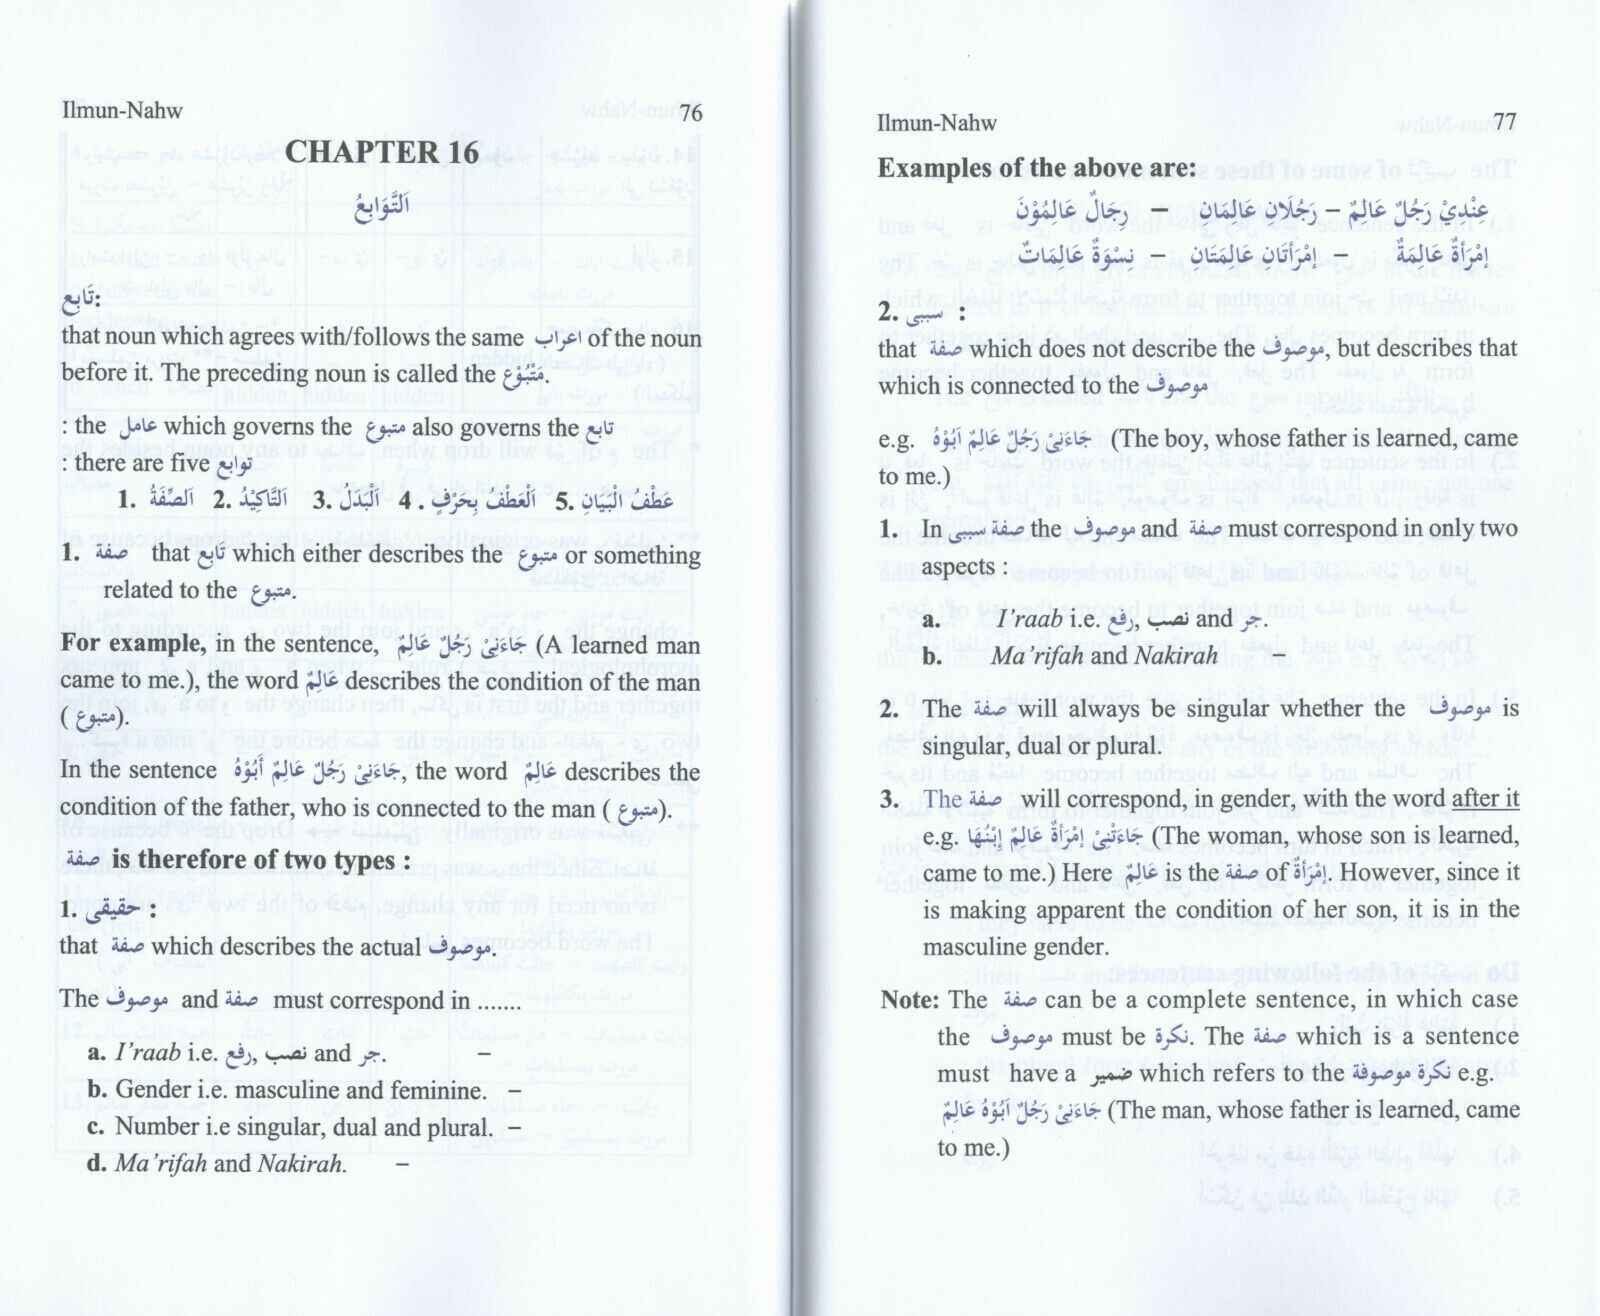 Ilmun-Nahw 76
CHAPTER 16
اَلتَّوَابِعُ
تَابِع:
that noun which agrees with/follows the same اعراب of the noun
before it. The preceding noun is called the مَتْبُوْع.
: the عامل which governs the متبوع also governs the تابع
: there are five توابع
1. اَلصِّفَةُ 2. اَلتَّاكِيْدُ 3. اَلْبَدَلُ 4 . اَلْعَطْفُ بِحَرْفٍ 5. عَطْفُ البَيَانِ
1. صفة that تَابِع which either describes the متبوع or something
related to the متبوع.
For example, in the sentence, جَاءَنِيْ رَجُلٌ عَالِمٌ (A learned man
came to me.), the word عَالِمٌ describes the condition of the man
( متبوع).
In the sentence جَاءَنِيْ رَجُلٌ عَالِمٌ أَبُوْهُ, the word عَالِمٌ describes the
condition of the father, who is connected to the man ( متبوع).
صفة is therefore of two types :
1. حقيقى :
that صفة which describes the actual موصوف.
The موصوف and صفة must correspond in .......
a. I'raab i.e. رفع, نصب and جر. –
b. Gender i.e. masculine and feminine. –
c. Number i.e singular, dual and plural. –
d. Ma'rifah and Nakirah. –
Ilmun-Nahw 77
Examples of the above are:
عِنْدِيْ رَجُلٌ عَالِمٌ – رَجُلَانِ عَالِمَانِ – رِجَالٌ عَالِمُوْنَ
اِمْرَأةٌ عَالِمَةٌ – اِمْرَأتَانِ عَالِمَتَانِ – نِسْوَةٌ عَالِمَاتٌ
2. سببى :
that صفة which does not describe the موصوف, but describes that
which is connected to the موصوف
e.g. جَاءَنِيْ رَجُلٌ عَالِمٌ اَبُوْهُ (The boy, whose father is learned, came
to me.)
1. In صفة سببى the موصوف and صفة must correspond in only two
aspects :
a. I'raab i.e. رفع, نصب and جر.
b. Ma'rifah and Nakirah –
2. The صفة will always be singular whether the موصوف is
singular, dual or plural.
3. The صفة will correspond, in gender, with the word after it
e.g. جَاءَتْنِيْ اِمْرَأةٌ عَالِمٌ اِبْنُهَا (The woman, whose son is learned,
came to me.) Here عَالِمٌ is the صفة of اِمْرَأةٌ. However, since it
is making apparent the condition of her son, it is in the
masculine gender.
Note: The صفة can be a complete sentence, in which case
the موصوف must be نكرة. The صفة which is a sentence
must have a ضمير which refers to the نكرة موصوفة e.g.
جَاءَنِيْ رَجُلٌ اَبُوْهُ عَالِمٌ (The man, whose father is learned, came
to me.)